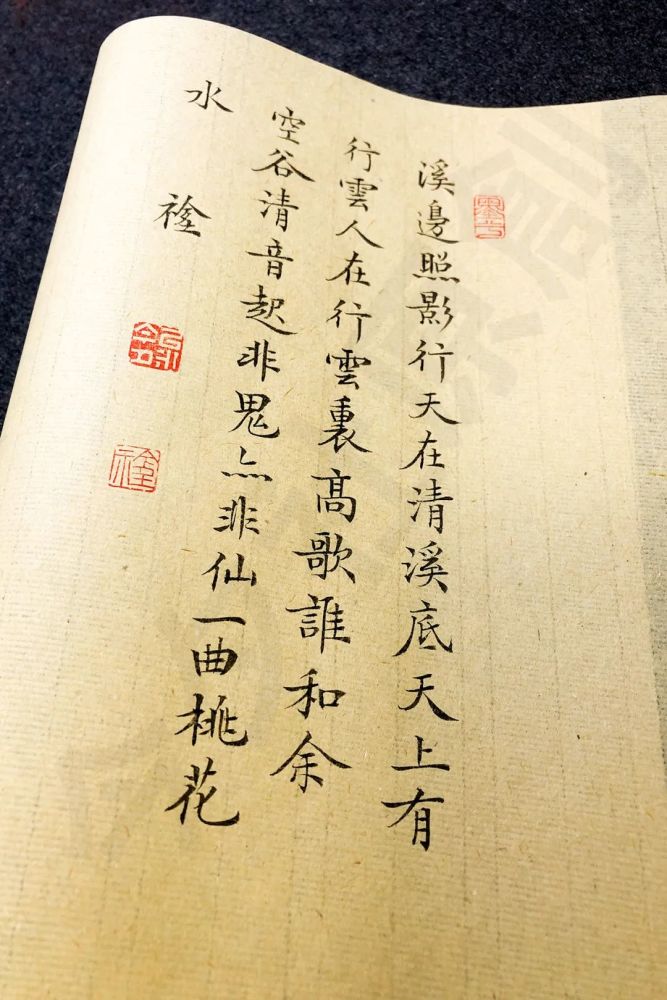 溪邊照影行天在清溪底天上有
行雲人在行雲裏高歌誰和余
空谷清音起非鬼亦非仙一曲桃花
水